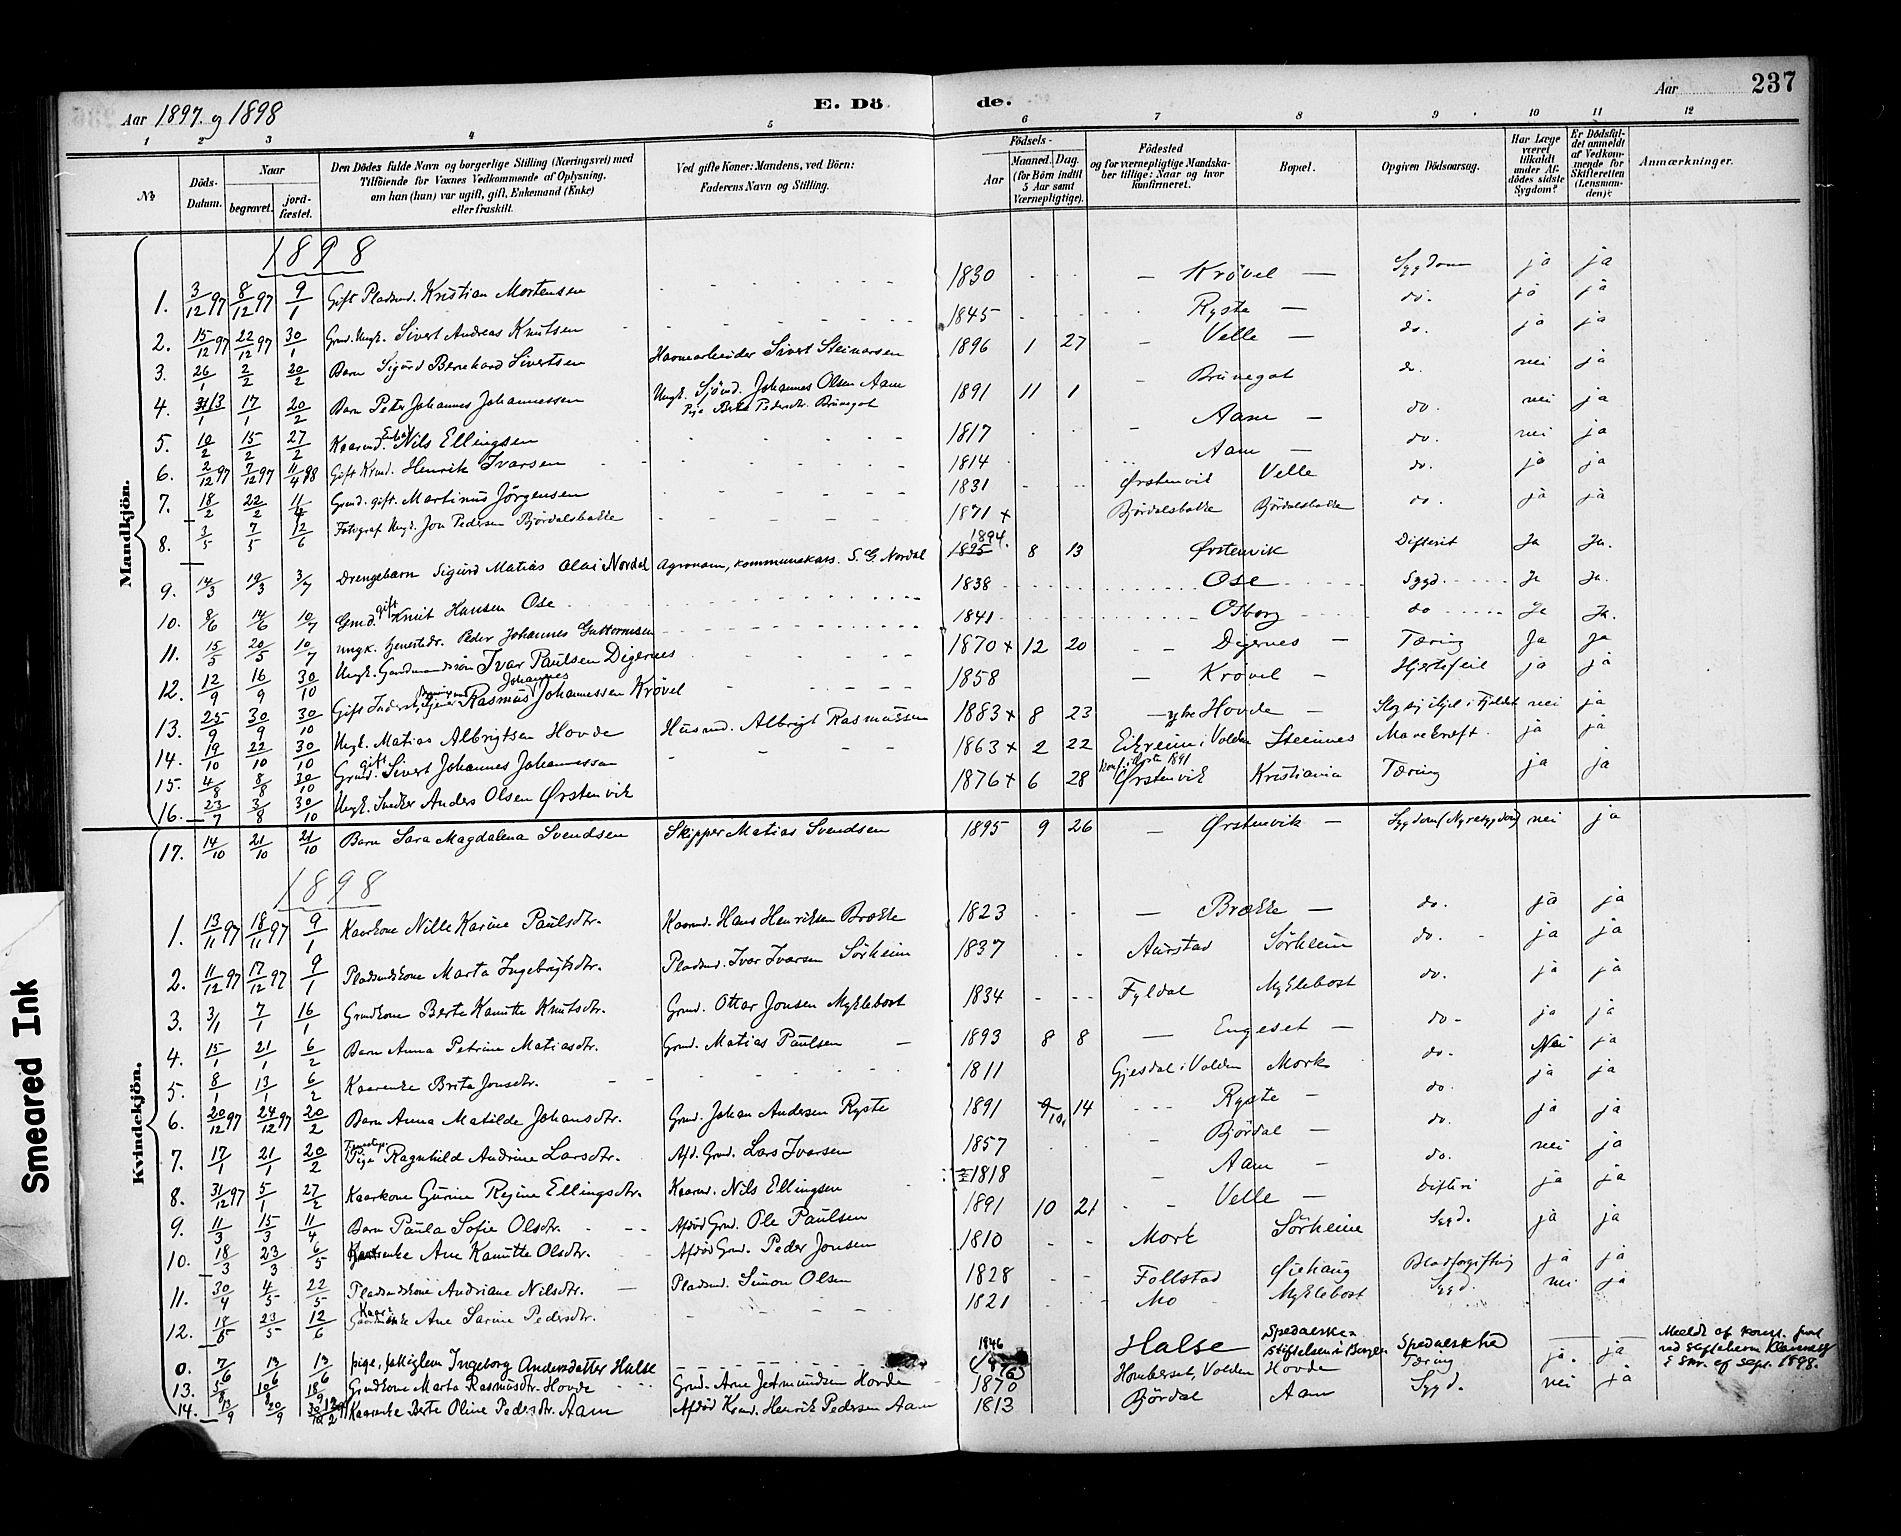 Aar 1897. og 1898
E. Döde.
Aar
237
1 2 3 4 5 6 7 8 9 10 11 12
No
Döds-Datum.
Naar
begravet.
jord-fæstet.
Den Dödes fulde Navn og borgerlige Stilling (Næringsvei) med
Tilföiende for Voxnes Vedkommende af Oplysning,
om han (hun) var ugift, gift, Enkemand (Enke)
eller fraskilt.
Ved gifte Koner: Mandens, ved Börn:
Faderens Navn og Stilling.
Födsels-
Aar
Maaned. Dag.
(for Börn indtil
5 Aar samt
Værnepligtige).
Födested
og for værnepligtige Mandska-
ber tillige: Naar og hvor
konfirmeret.
Bopæl.
Opgiven Dödsaarsag.
Har Læge
været
tilkaldt
under Af-
dödes sidste
Sygdom?
Er Dödsfal-
det anmeldt
af Vedkom-
mende for
Skifteretten
(Lensman-
den)?
Anmærkninger.
Mandkjön.
1898
1. 3/12 97 8/12 97 9/1 Gift Pladsmd. Kristian Mortensen 1830 Krövel Sygdom ja ja
2. 15/12 97 22/12 97 30/1 Grmd. Ungk. Sivert Andreas Knutsen 1845 Ryste do. ja ja
3. 26/1 2/2 20/2 Barn Sigurd Bernhard Sivertsen Havnearbeider Sivert Steinarsen 1896 1 27 Velle do. ja ja
4. 13/1 17/1 20/2 Barn Peter Johannes Johannessen Ungk. Sjömd. Johannes Olsen Aam
Pige Berte Pedersdtr. Brunegot 1891 11 1 Brunegot do. nei ja
5. 10/2 15/2 27/2 Kaarmd. Nils Ellingsen 1817 Aam do. nei ja
6. 2/12 97 7/12 97 11/4 98 Gift Krmd. Henrik Ivarsen 1814 Aam do. nei ja
7. 18/2 22/2 11/4 Grmd. gift. Martinus Jörgensen 1831 Ørstenvik Velle do. ja ja
8. 3/5 7/5 12/6 Fotograf Ungk. Jon Pedersen Björdalsbakke 1871 + Björdalsbakke Björdalsbakke do. ja ja
9. 14/3 19/3 3/7 Drengebarn Sigurd Matias Olai Nordal Agronom, kommunekass. S. G. Nordal 1894. 1895 8 13 Ørstenvik Difterit Ja Ja.
10. 8/6 14/6 10/7 Gmd. gift Knut Hansen Ose 1838 Ose Sygd. Ja Ja.
11. 15/5 20/5 10/7 Ungk. tjenestedr. Peder Johannes Guttormsen 1841 Osborg do Ja Ja.
12. 12/9 16/9 30/10 Ungk. Gaardmandssön Ivar Paulsen Digernes 1870 + 12 20 Digernes Tæring Ja ja
13. 25/9 30/9 30/10 Gift Inderst, Rasmus Johannes Johannessen Krövel 1858 Krövel Hjertefeil ja ja
14. 19/10 22/10 30/10 Ungk. Matias Albrigtsen Hovde Husmd. Albrigt Rasmussen 1883 + 8 23 ytre Hovde Slog sig ihjel i Fjeldet nei ja
15. 4/8 8/8 30/10 Grmd. gift Sivert Johannes Johannessen 1863 + 2 22 Eikreim i Volden Steinnes Mavekræft ja ja
16. 23/7 3/8 30/10 Ungk. Snedker Anders Olsen Ørstenvik 1876 + 6 28 Konf. i Ørsta 1891 Ørstenvik Kristiania Tæring ja ja
Kvindekjön.
17. 14/10 21/10 21/10 Barn Sara Magdalena Svendsen Skipper Matias Svendsen 1895 9 26 Ørstenvik Sygdom (Nyresygdom) nei ja
1898
1. 13/11 97 18/11 97 9/1 Kaarkone Nille Karine Paulsdtr. Kaarmd. Hans Henriksen Brekke 1823 Brekke do. ja ja
2. 11/12 97 17/12 97 9/1 Pladsmdskone Marta Ingebrigtsdtr. Pladsmd. Ivar Ivarsen Sörheim 1837 Aurstad Sörheim do. ja ja
3. 3/1 7/1 16/1 Grmdkone Berte Kanutte Knutsdtr. Grmd. Ottar Jonsen Myklebost 1834 Fyldal Myklebost do. ja ja
4. 15/1 21/1 6/2 Barn Anna Petrine Matiasdtr. Grmd. Matias Paulsen 1893 8 8 Engeset do. ja ja
5. 8/1 13/1 6/2 Kaarenke Brita Jonsdtr. 1811 Gjesdal i Volden Mork do. Nei ja
6. 20/12 97 24/12 97 20/2 Barn Anna Matilde Johansdtr. Grmd. Johan Andersen Ryste 1891 9/10, 14 Ryste do. ja ja
7. 17/1 21/1 20/2 Pige Ragnhild Andrine Larsdtr. Afd. Grmd. Lars Ivarsen 1857 Björdal do. ja ja
8. 31/12 97 5/1 27/2 Kaarkone Gurine Regine Ellingsdtr. Kaarmd. Nils Ellingsen 1818 Aam do. nei ja
9. 11/3 15/3 11/4 Barn Paula Sofie Olsdtr. Afdöd Grmd. Ole Paulsen 1891 10 21 Velle Difteri ja ja
10. 18/3 23/3 6/5 Kaarenke Ane Kanutte Olsdtr. Afdöd Grmd. Peder Jonsen 1810 Mork Sörheim Sygd. ja ja
11. 30/4 4/5 22/5 Pladsmdskone Andriane Nilsdtr. Pladsmd. Simon Olsen 1828 Follstad Øiehaug Blodforgiftning ja ja
12. 18/5 23/5 12/6 Ane Sarine Pedersdtr. 1821 Mo Myklebost Sygd. nei ja
0. 7/6 13/6 13/6 pige, fattiglem Ingeborg Andersdatter Halse 1846 Halse Spedalske-stiftelsen i Bergen Spedalskhed
13. 5/8 10/8 18/9 Grmdkone Marta Rasmusdtr. Hovde Grmd. Arne Jetmundsen Hovde 1870 Homberset, Volden Hovde Tæring ja. ja
14. 13/9 20/9 Kaarenke Berte Oline Pedersdtr. Aam Afdöd Krmd. Henrik Pedersen Aam 1813 Björdal Aam Sygd. nei ja
Smeared Ink